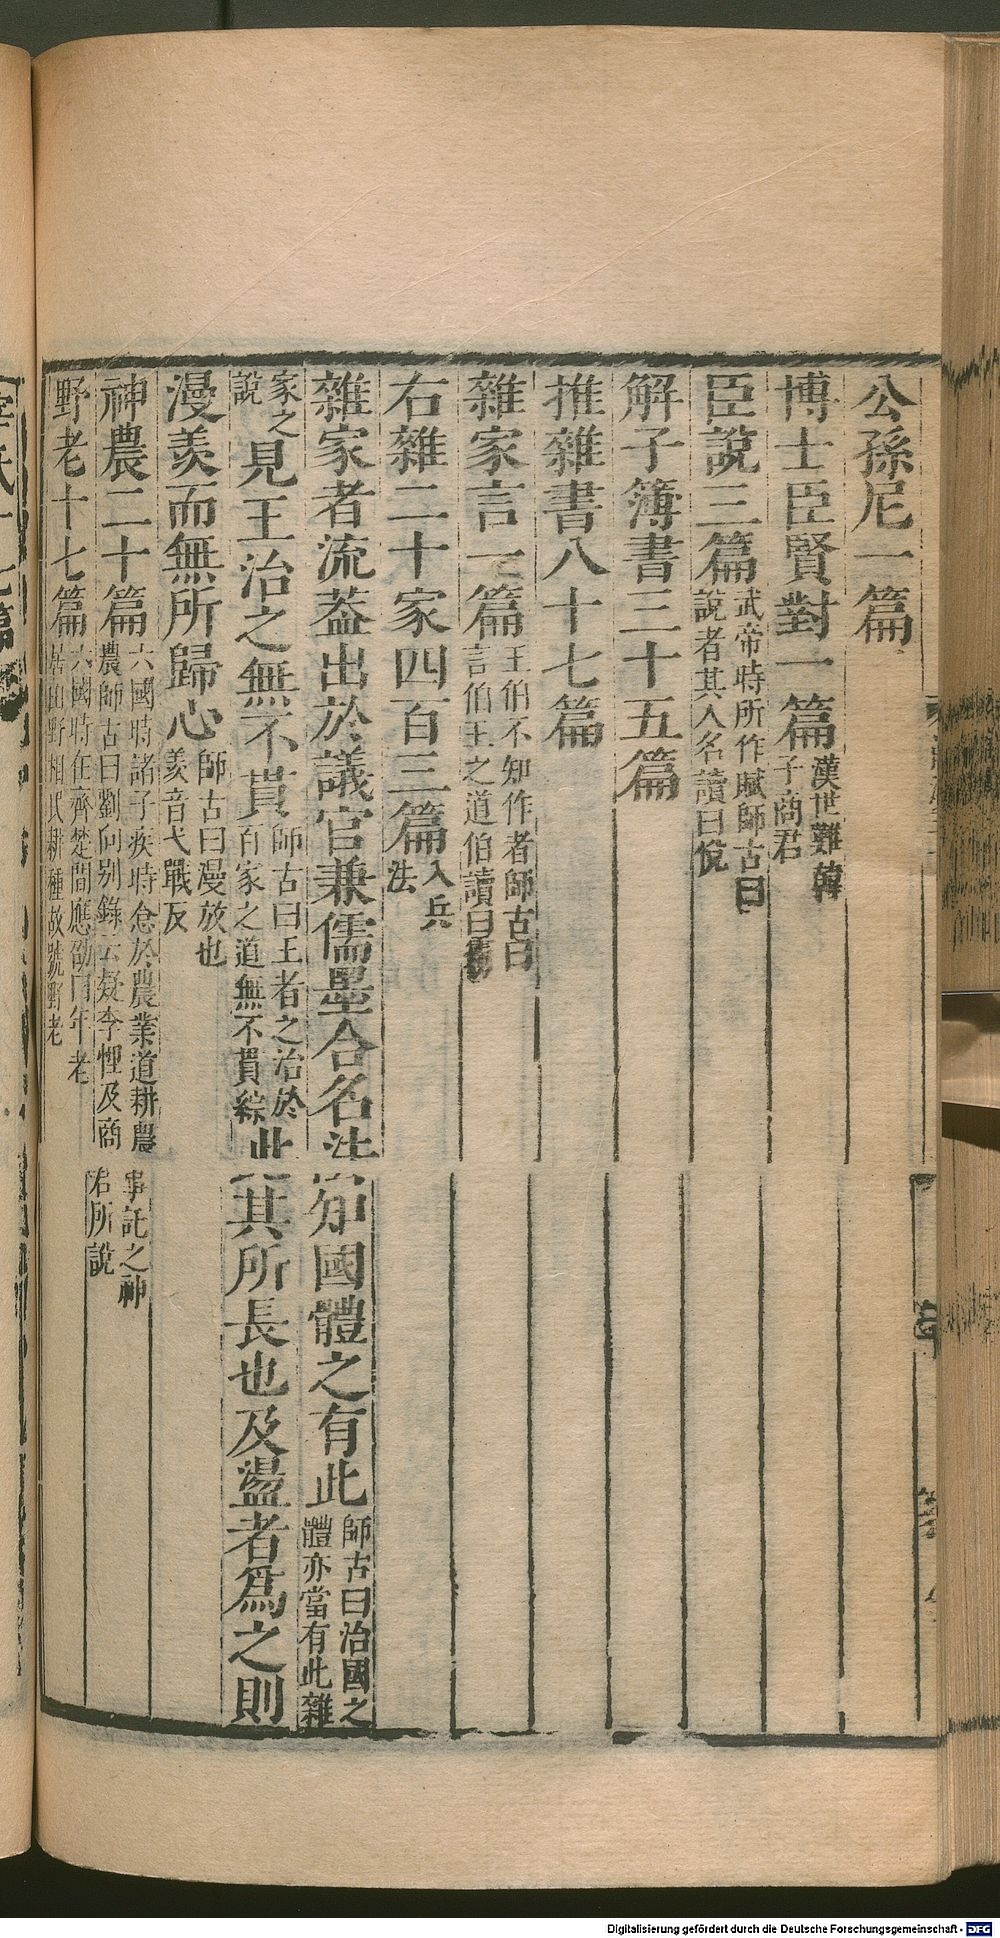 公孫尼一篇
博士臣賢對一篇漢世難韓子商君
臣說三篇武帝時所作賦師古曰說者其人名讀曰悅
解子簿書三十五篇
推雜書八十七篇
雜家言一篇王伯不知作者師古曰言伯王之道伯讀曰霸
右雜二十家四百三篇入兵法
雜家者流蓋出於議官兼儒墨合名法知國體之有此師古曰治國之體亦當有此雜
家之說見王治之無不貫師古曰王者之治於百家之道無不貫綜此其所長也及盪者為之則
漫羨而無所歸心師古曰漫放也羨音弋戰反
神農二十篇六國時諸子疾時怠於農業道耕農事託之神農師古曰劉向別錄云疑李悝及商君所說
野老十七篇六國時在齊楚間應劭曰年老居田野相民耕種故號野老
Digitalisierung gefördert durch die Deutsche Forschungsgemeinschaft - DFG